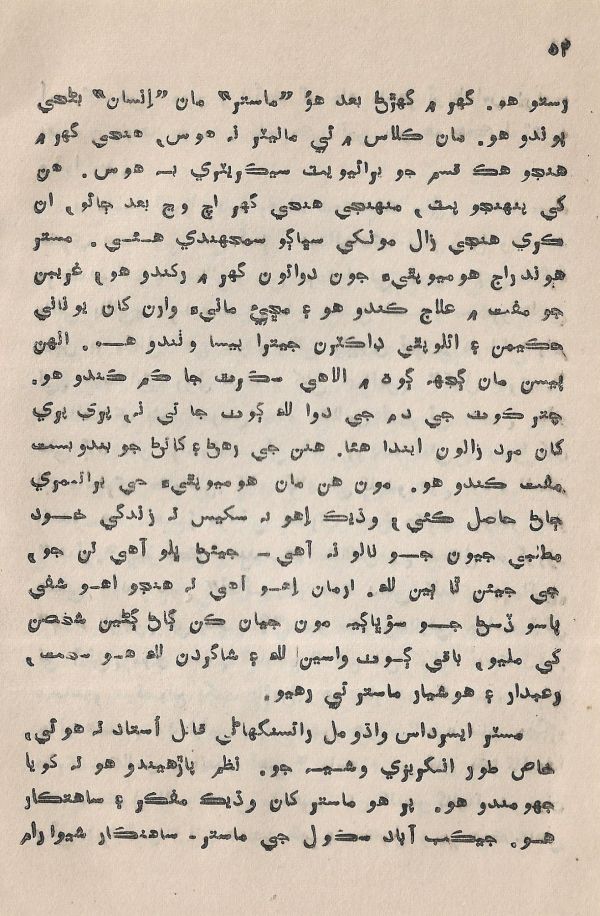 ۵۲
رستو هو. گهر ۾ گهڙڻ بعد هوُ ”ماستر“ مان ”اِنسان“ بڻجي
پوندو هو. مان ڪلاس ۾ ئي مانيٽر نہ هوس، هنجي گهر ۾
هنجو هڪ قسم جو پرائيويٽ سيڪريٽري بہ هوس. هن
کي پنهنجو پٽ، منهنجي هنجي گهر اچ وڃ بعد ڄائو، ان
ڪري هنجي زال مونکي سڀاڳو سمجهندي هئي. مستر
هوندراج هوميوپٿيءَ جون دوائون گهر ۾ رکندو هو، غريبن
جو مفت ۾ علاج ڪندو هو ۽ مڇيءَ مانيءَ وارن کان يوناني
حڪيمن ۽ ائلوپٿي ڊاڪٽرن جيترا پيسا وٺندو هو. انهن
پيسن مان ڳجهہ ڳوھ ۾ الاهي سڪرت جا ڪم ڪندو هو.
چترڪوٽ جي دم جي دوا لاءِ ڳوٺ جا ئي نہ، پري پري
کان مرد زالون ايندا هئا. هنن جي رهڻ ۽ کائڻ جو بندوبست
مفت ڪندو هو. مون هن مان هوميوپٿيءَ جي پرائمري
ڄاڻ حاصل ڪئي، وڌيڪ اِهو نہ سکيس تہ زندگي خود
مطلبي جيون جو نالو نہ آهي - جيئڻ ڀلو آهي تن جو،
جي جيئن ٿا ٻين لاءِ. ارمان اِهو آهي تہ هنجو اهو شفي
پاسو ڏسڻ جو سؤڀاڳيہ مون جيان ڪن ڳاڻ ڳڻين شخصن
کي مليو، باقي ڳوٺ واسين لاءِ ۽ شاگردن لاءِ هو سخت،
رعبدار ۽ هوشيار ماستر ئي رهيو.
مستر ايسرداس واڌومل رائسنگهاڻي قابل اُستاد تہ هوئي،
خاص طور انگريزي وشيہ جو. نظم پاڙهيندو هو تہ ڪويا
جهومندو هو. پر هو ماستر کان وڌيڪ مفڪر ۽ ساهتڪار
هو. جيڪب آباد سڪول جي ماستر - ساهتڪار شيوارام